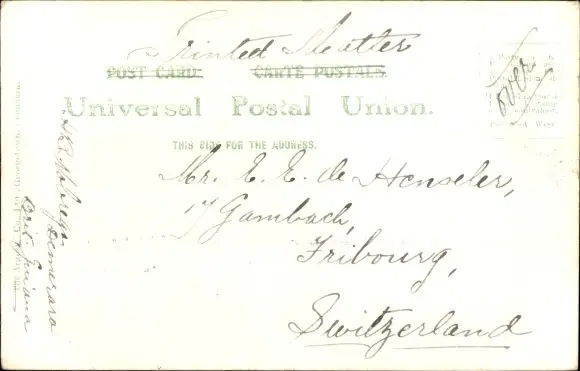 Printed Matter
POST CARD. CARTE POSTALE.
over
Universal Postal Union.
THIS SIDE FOR THE ADDRESS.
Mr. E. E. de Henseler,
17 Gambach,
Fribourg,
Switzerland
Demerara
Brit. Guiana